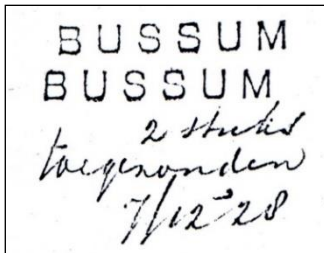 BUSSUM
BUSSUM
2 stuks
toegezonden
7/12 28